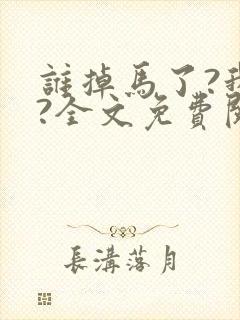 誰掉馬了?我
?全文免費閱
長溝落月